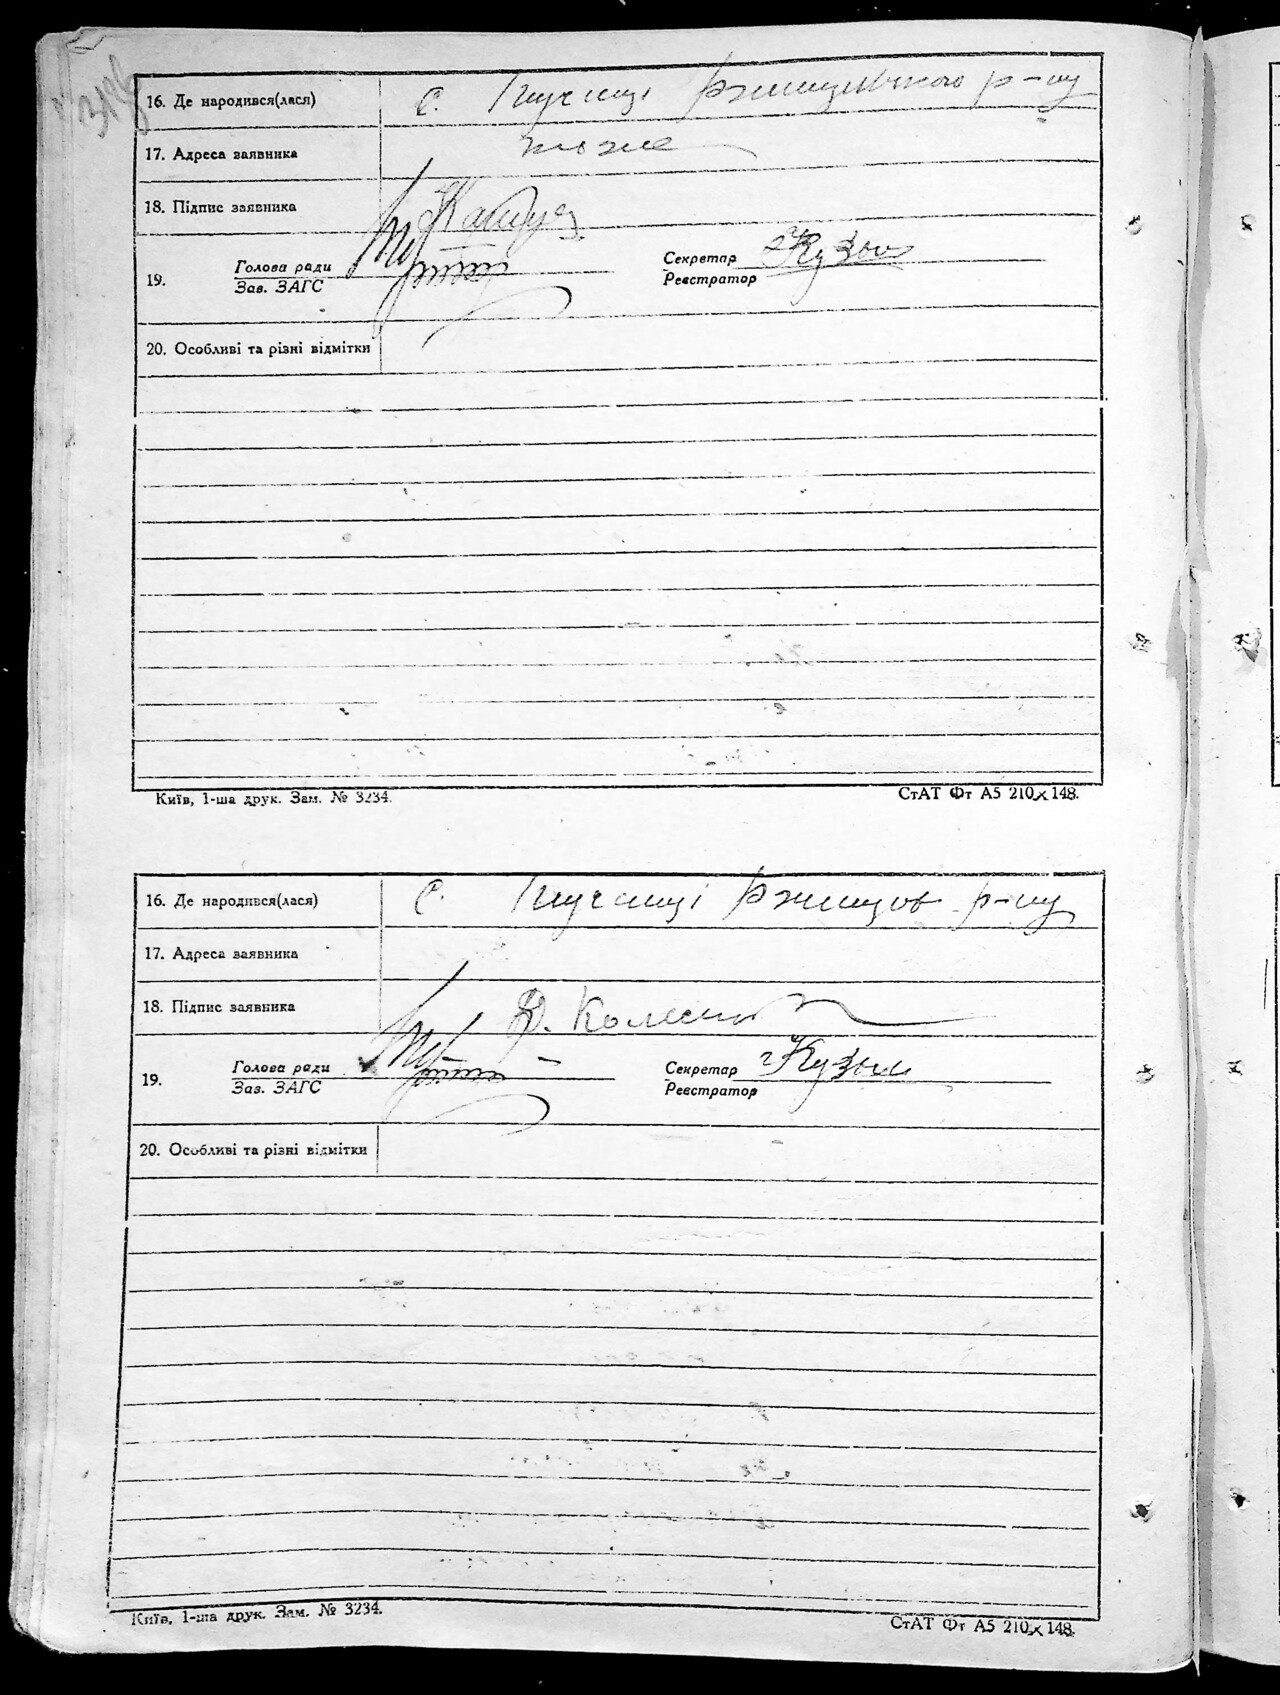 16. Де народився(лася) с. Гнучищі Ржищівського р-ну
17. Адреса заявника тоже
18. Підпис заявника
19. Голова ради Секретар Кузьм
Зав. ЗАГС Реєстратор
20. Особливі та різні відмітки
Київ, 1-ша друк. Зам. № 3234. СтАТ Фт А5 210×148.
16. Де народився(лася) с. Гнучищі Ржищов р-ну
17. Адреса заявника
18. Підпис заявника
19. Голова ради Секретар Кузьм
Зав. ЗАГС Реєстратор
20. Особливі та різні відмітки
Київ, 1-ша друк. Зам. № 3234. СтАТ Фт А5 210×148.